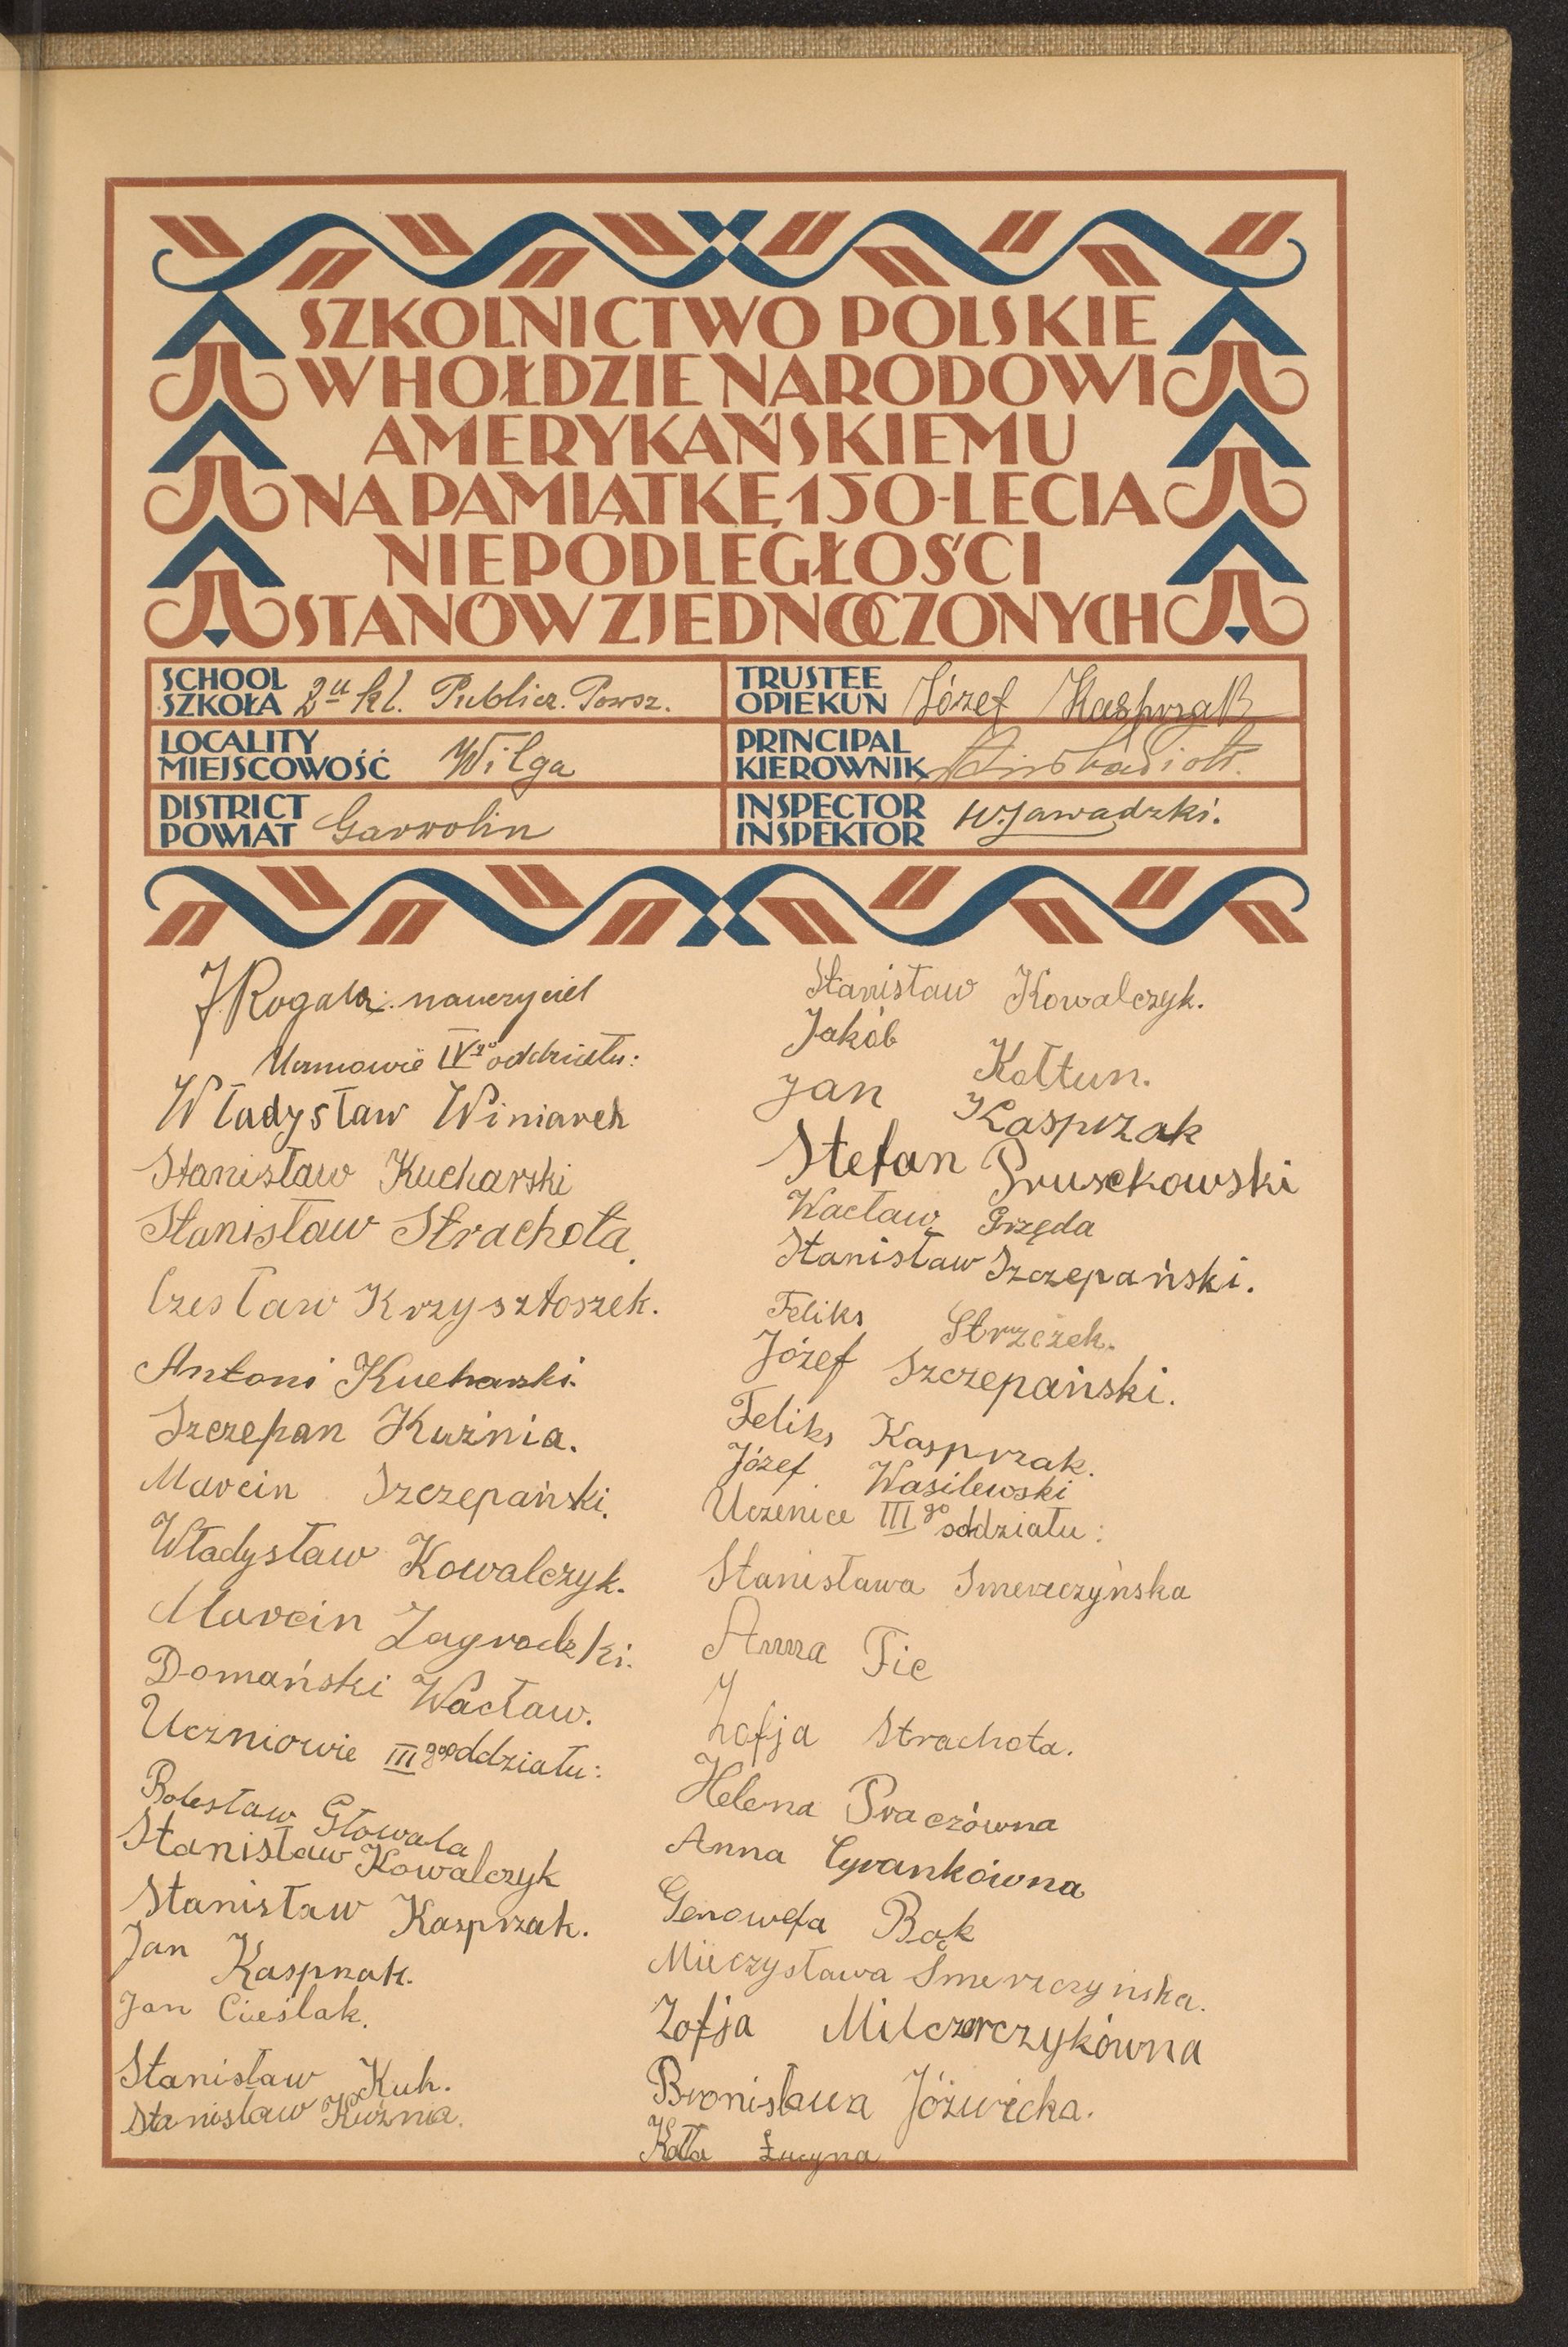 SZKOLNICTWO POLSKIE
W HOŁDZIE NARODOWI
AMERYKAŃSKIEMU
NA PAMIĄTKĘ 150-LECIA
NIEPODLEGŁOŚCI
STANÓW ZJEDNOCZONYCH
SCHOOL
SZKOŁA 2u kl. Publicz. Powsz.
TRUSTEE
OPIEKUN Józef Kasprzak
LOCALITY
MIEJSCOWOŚĆ Wilga
PRINCIPAL
KIEROWNIK
DISTRICT
POWIAT Garwolin
INSPECTOR
INSPEKTOR W. Zawadzki.
J Rogala nauczyciel
Uczniowie IVgo oddziału:
Władysław Winiarek
Stanisław Kucharski
Stanisław Strachota.
Czesław Krzysztoszek.
Antoni Kucharski.
Szczepan Kuźnia.
Marcin Szczepański.
Władysław Kowalczyk.
Marcin Zagrodzki.
Domański Wacław.
Uczniowie III go oddziału:
Bolesław Głowala
Stanisław Kowalczyk
Stanisław Kasprzak.
Jan Kasprzak.
Jan Cieślak.
Stanisław Kuh.
Stanisław Kuźnia.
Stanisław Kowalczyk.
Jakób Kołtun.
Jan Kasprzak
Stefan Pruszkowski
Wacław Grzęda
Stanisław Szczepański.
Feliks Strzeżek.
Józef Szczepański.
Feliks Kasprzak.
Józef Wasilewski
Uczenice III go oddziału:
Stanisława Smerczyńska
Anna Fic
Zofja Strachota.
Helena Praczówna
Anna Cyrankówna
Genowefa Bąk
Mieczysława Smerczyńska.
Zofja Milczarczykówna
Bronisława Jóźwicka.
Kołła Łucyna